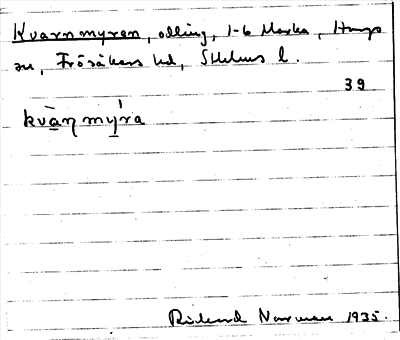 Kvarnmyren, odling, 1-6 Marka, Hargs
sn, Frösåkers hd, Sthlms l.
39
kvà̱ɳmý̱ra
Rickard Norman 1935.